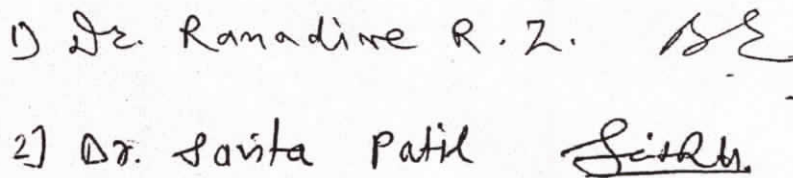 1) Dr. Ranadive R. Z.
2] Dr. Savita Patil